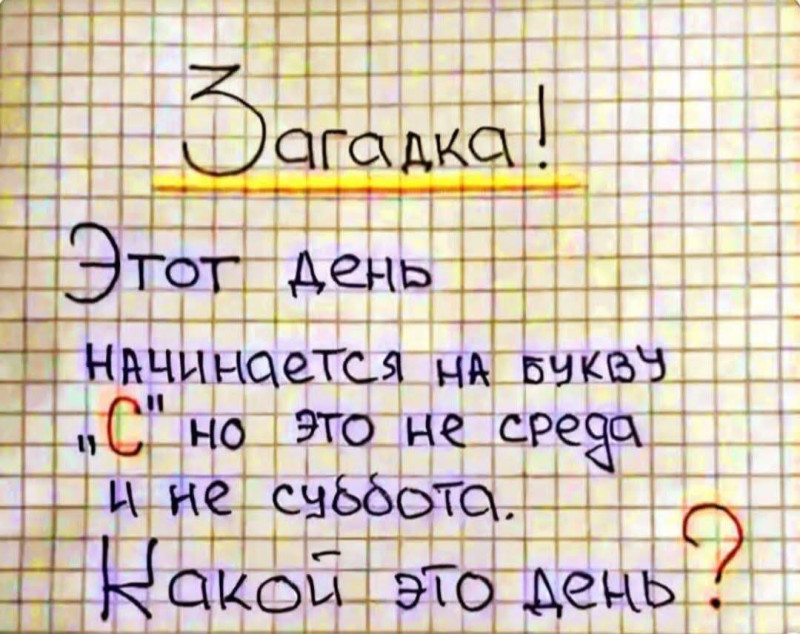 Загадка!
Этот день
начинается на букву
„С" но это не среда
и не суббота.
Какой это день?